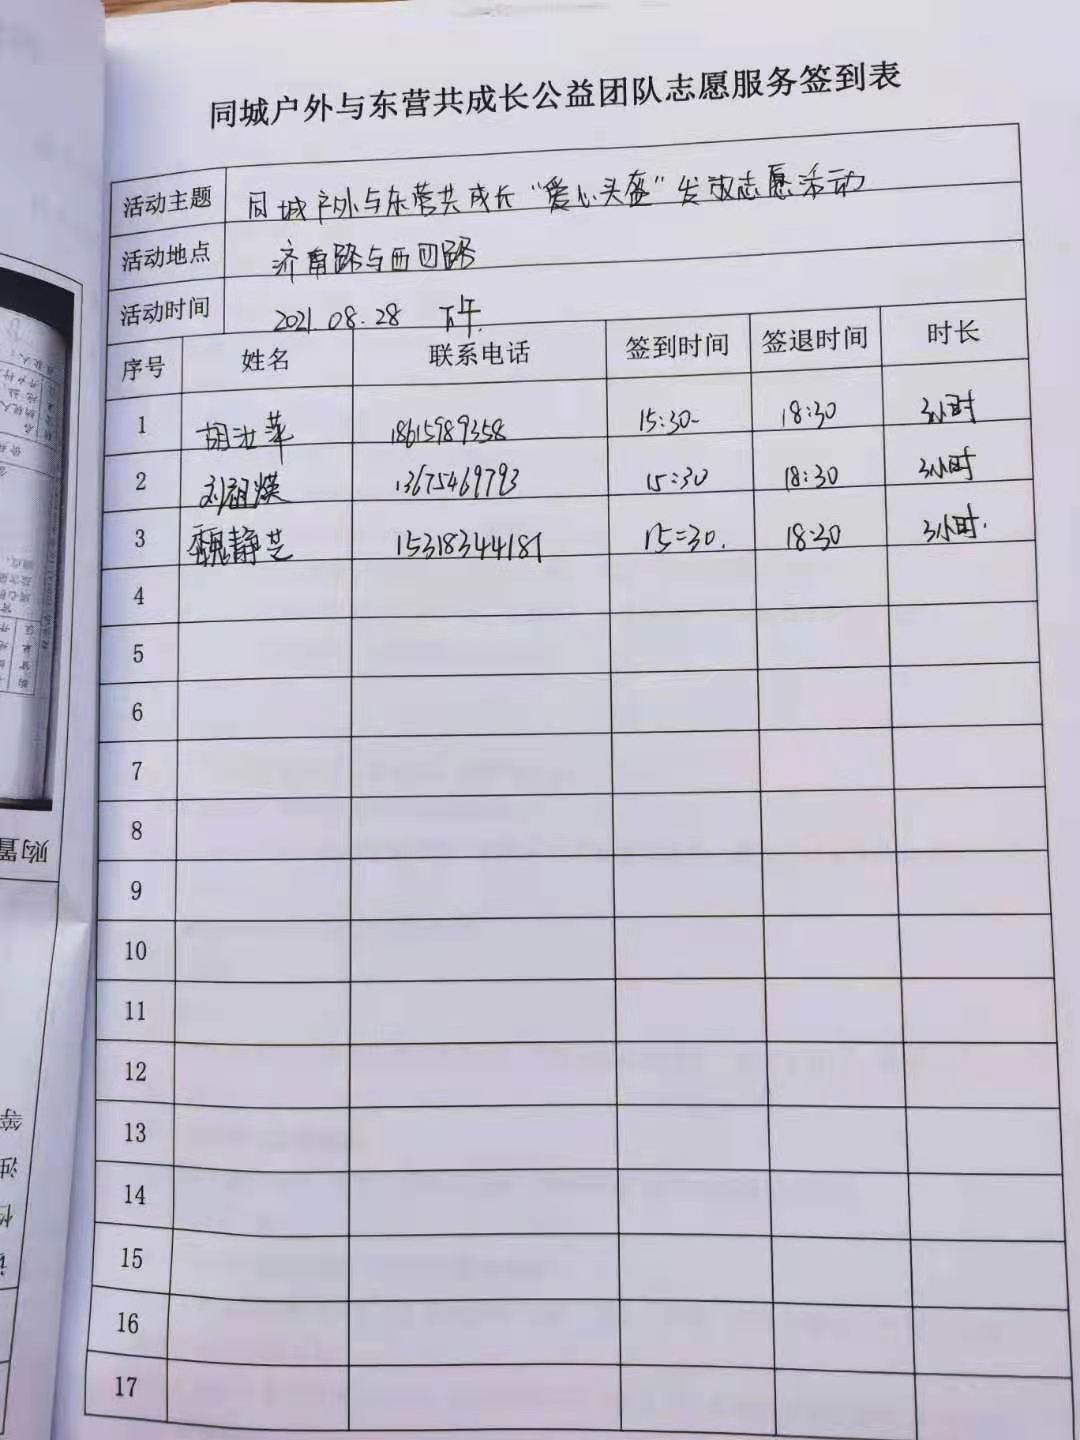 同城户外与东营共成长公益团队志愿服务签到表
活动主题 同城户外与东营共成长“爱心头盔”发放志愿活动
活动地点 济南路与西四路
活动时间 2021.08.28 下午.
序号 姓名 联系电话 签到时间 签退时间 时长
1 胡汝萍 18615989358 15:30 18:30 3小时
2 刘祖焕 13675469793 15:30 18:30 3小时
3 魏静芝 15318344187 15:30. 18:30 3小时.
4
5
6
7
8
9
10
11
12
13
14
15
16
17
购置